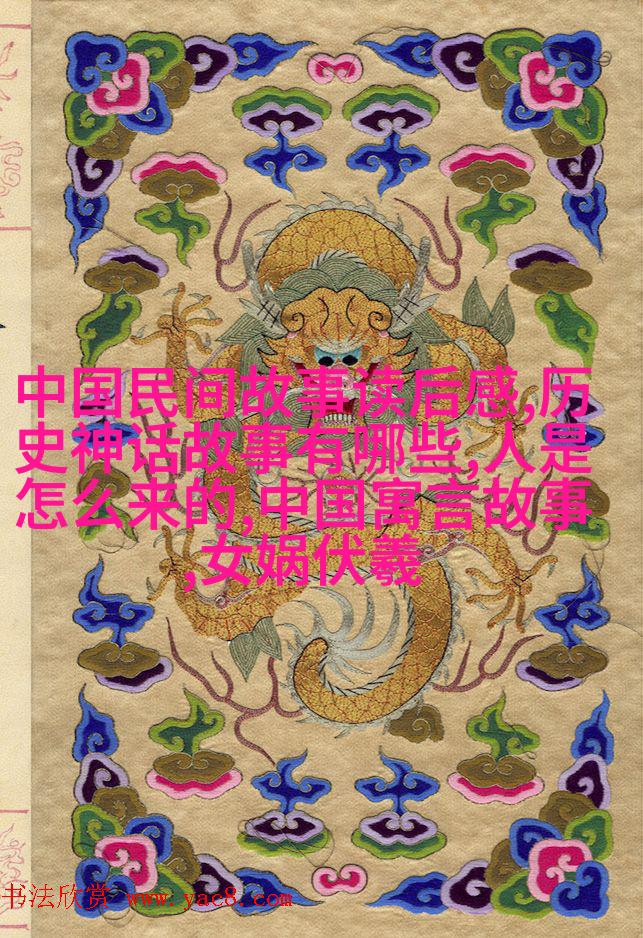 中国民间故事读后感,历
史神话故事有哪些,人是
怎么来的,中国寓言故事
,女娲伏羲
书法欣赏 www.yac8.com